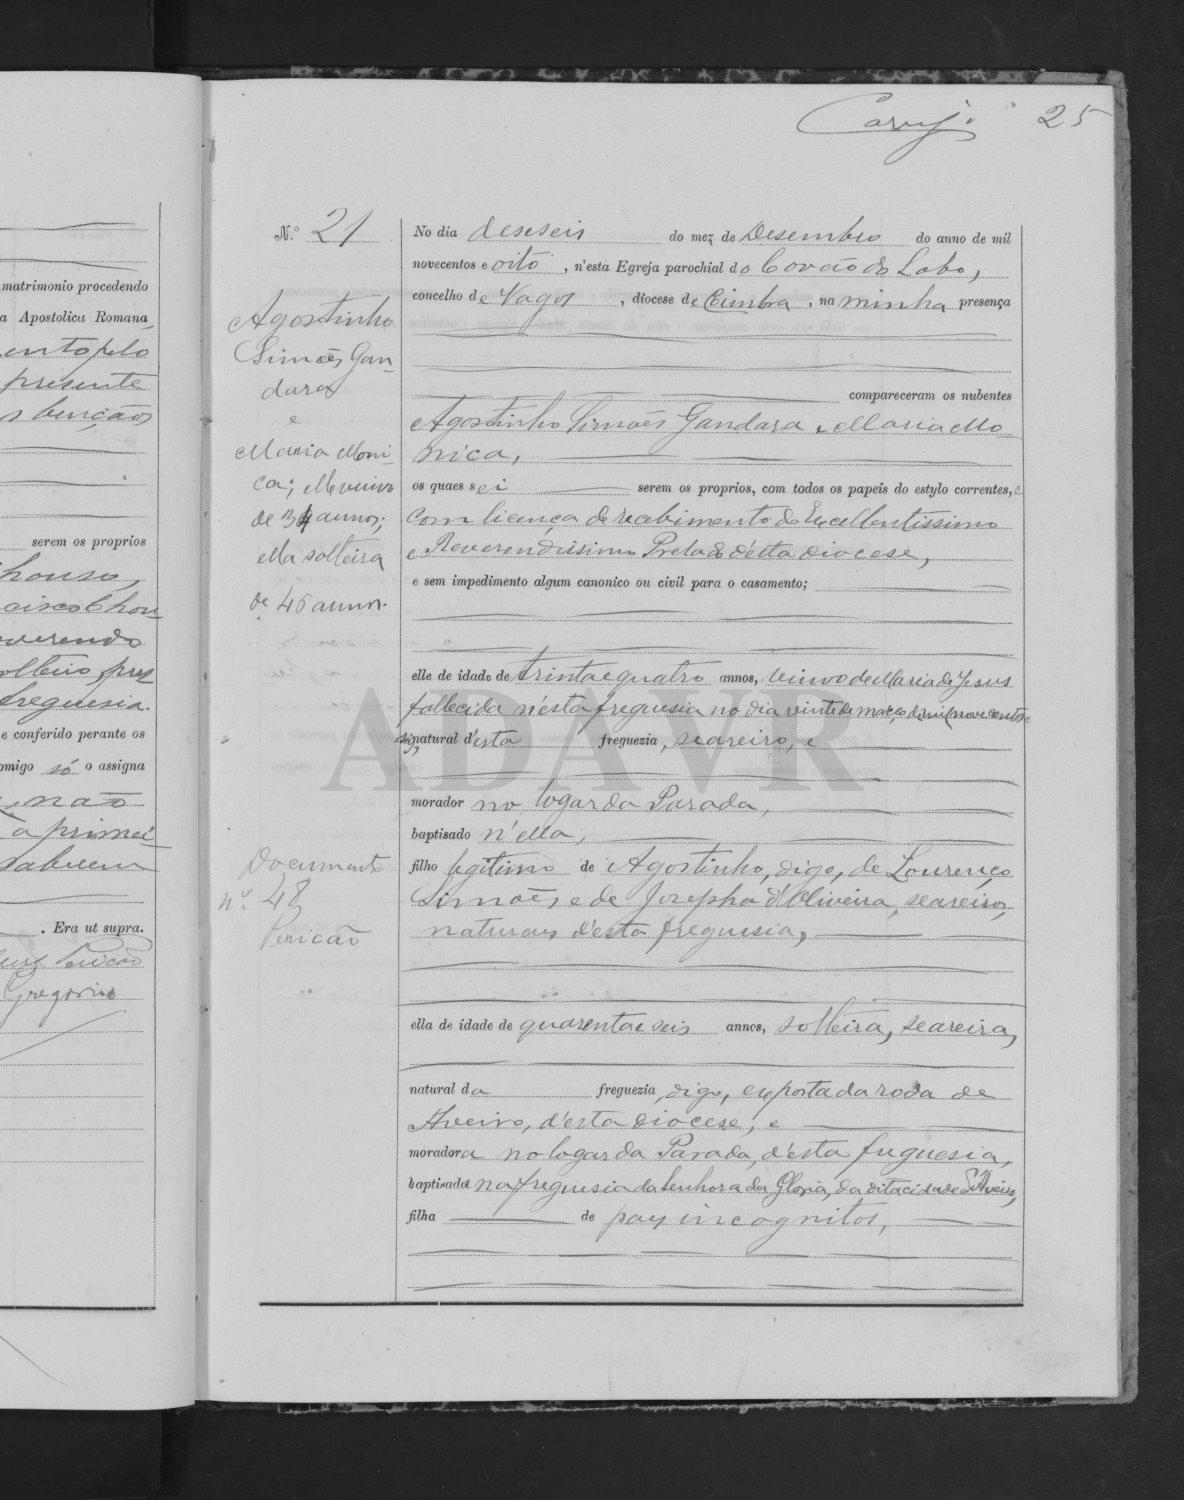 Carvj.º 25
matrimonio procedendo
a Apostolica Romana,
ento pelo
presente
s benções
serem os proprios
houso,
cisco Chou-
verendo
olteiro, prez
freguesia.
e conferido perante os
omigo só o assigna
não
a primei-
saberem
. Era ut supra.
Perição
Gregorio
N.º 21
Agostinho
Simões Gan-
dara
e
Maria Moni-
ca; elle viuvo
de 34 annos;
ella solteira
de 46 annos.
Documento
nº 48
Perição
No dia deseseis do mez de Desembro do anno de mil
novecentos e oito, n'esta Egreja parochial do Covão do Lobo,
concelho de Vagos, diocese de Coimbra, na minha presença
compareceram os nubentes
Agostinho Simões Gandara e Maria Mo-
nica,
os quaes sei serem os proprios, com todos os papeis do estylo correntes, e
com licença de recebimento do Excellentissimo
e Reverendissimo Prelado d'esta diocese,
e sem impedimento algum canonico ou civil para o casamento;
elle de idade de trinta e quatro annos, viuvo de Maria de Jesus
fallecida n'esta freguesia no dia vinte de março de mil novecentos e
seis, natural d'esta freguezia, seareiro, e
morador no logar da Parada,
baptisado n'ella,
filho legitimo de Agostinho, digo, de Lourenço
Simões e de Josepha d'Oliveira, seareiros,
naturaes d'esta freguesia,
ella de idade de quarenta e seis annos, solteira, seareira,
natural da freguezia, digo, exposta da roda de
Aveiro, d'esta diocese, e
moradora no logar da Parada, d'esta freguesia,
baptisada na freguesia da Senhora da Gloria, da dita cidade d'Aveiro,
filha de paes incognitos,
ADAVR